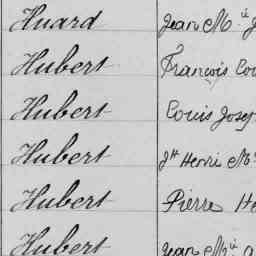 Huard Jean M.ie J
Hubert François Lou
Hubert Louis Josep
Hubert Jh Henri Mie
Hubert Pierre He
Hubert Jean M.ie A